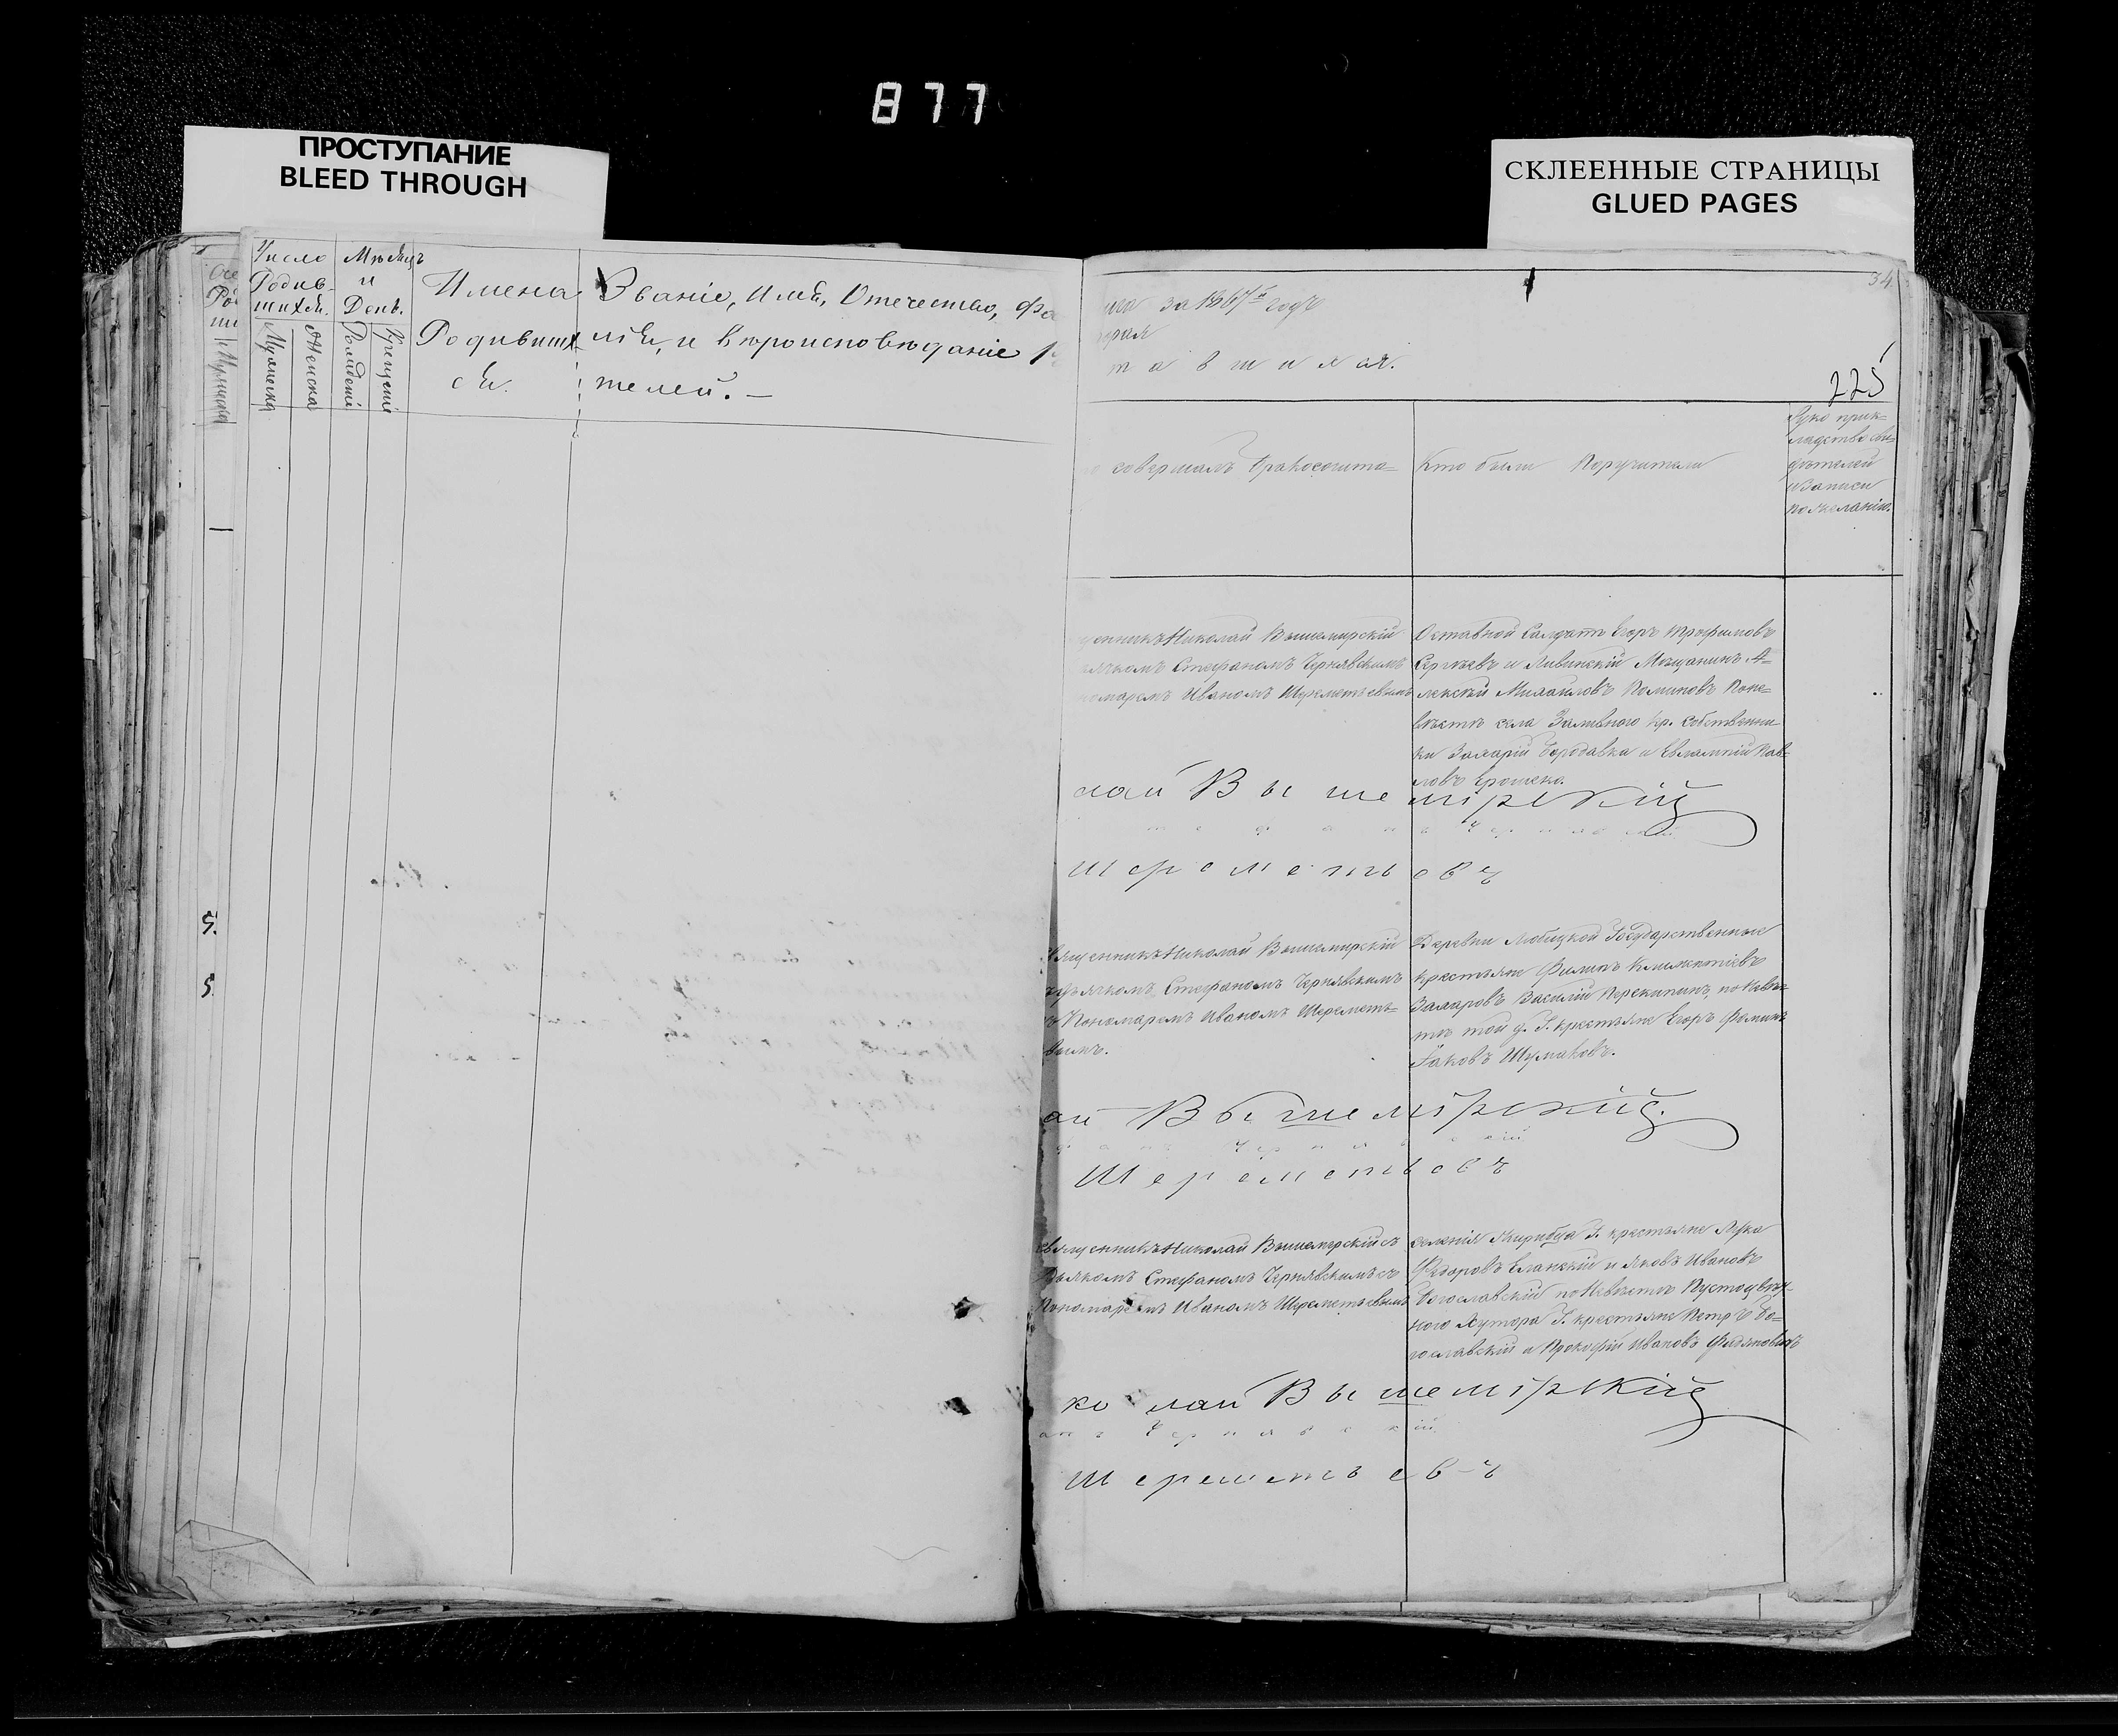 877
ПРОСТУПАНИЕ
BLEED THROUGH
СКЛЕЕННЫЕ СТРАНИЦЫ
GLUED PAGES
Число
Родив-
шихся.
Мужеска
Женска
Мѣсяцъ
и
День.
Рожденія
Крещенія
Имена
Родивших
ся.
Званіе, Имя, Отечество, Фа
лія, и вѣроисповѣданіе Р
телей. —
5.
5.
34
за 1867й годъ
тавшихся.
225
совершалъ бракосочета=
Кто были Поручители
Руко прик-
ладство сви-
дѣтелей
записи
по желанію.
Николай Вышемирскій
Стефаномъ Чернявскимъ
Иваномъ Шереметьевымъ
Отставной Солдатъ Егоръ Трофимовъ
Сергѣевъ и Ливенскій Мещанинъ А=
лексѣй Михайловъ Поминовъ Поне=
вѣстѣ села Заливного кр. Собственни
ки Захарій Бородавка и Евлампій Пав=
ловъ Ерошенко.
лай Вышемірскій
Чернявскій
Шереметьевъ
священникъ Николай Вышемирскій
дьячкомъ Стефаномъ Чернявскимъ
Пономаремъ Иваномъ Шереметь=
вымъ.
Деревни Любицкой Государственные
крестьяне Филипъ Климентіевъ
Захаровъ Василій Перекипинъ, по Невѣс=
тѣ той д. Г. крестьяне Егоръ Фоминъ
Іаковъ Шумаковъ.
ай Вышемірскій.
Чернявскій
Шереметьевъ
Священникъ Николай Вышемирскій съ
Дьячкомъ Стефаномъ Чернявскимъ съ
Пономаремъ Иваномъ Шереметьевымъ
селенія Г. крестьяне Лука
Федоровъ Еланскій и Яковъ Ивановъ
Богославскій по Невѣстѣ
Хутора Г. крестьяне Петръ Бо=
гославскій и Прокофій Ивановъ
ко лай Вышемірскій
анъ Чернявскій
Шереметьевъ